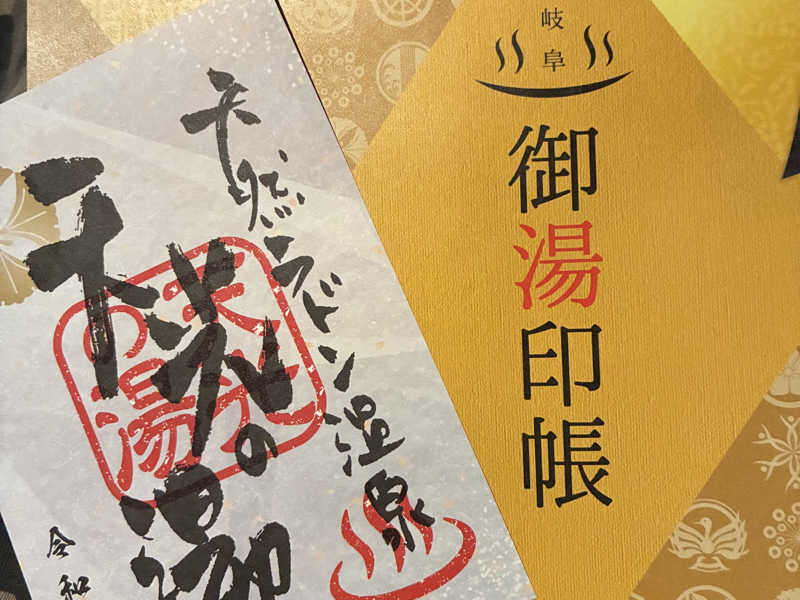 岐阜
御湯印帳
天然ラドン温泉
天光の湯
天光の湯
令和